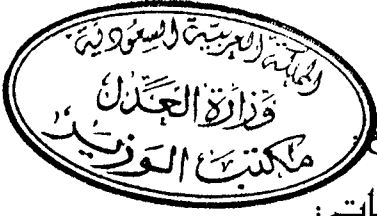 المملكة العربية السعودية
وزارة العدل
مكتب الوزير
ات :